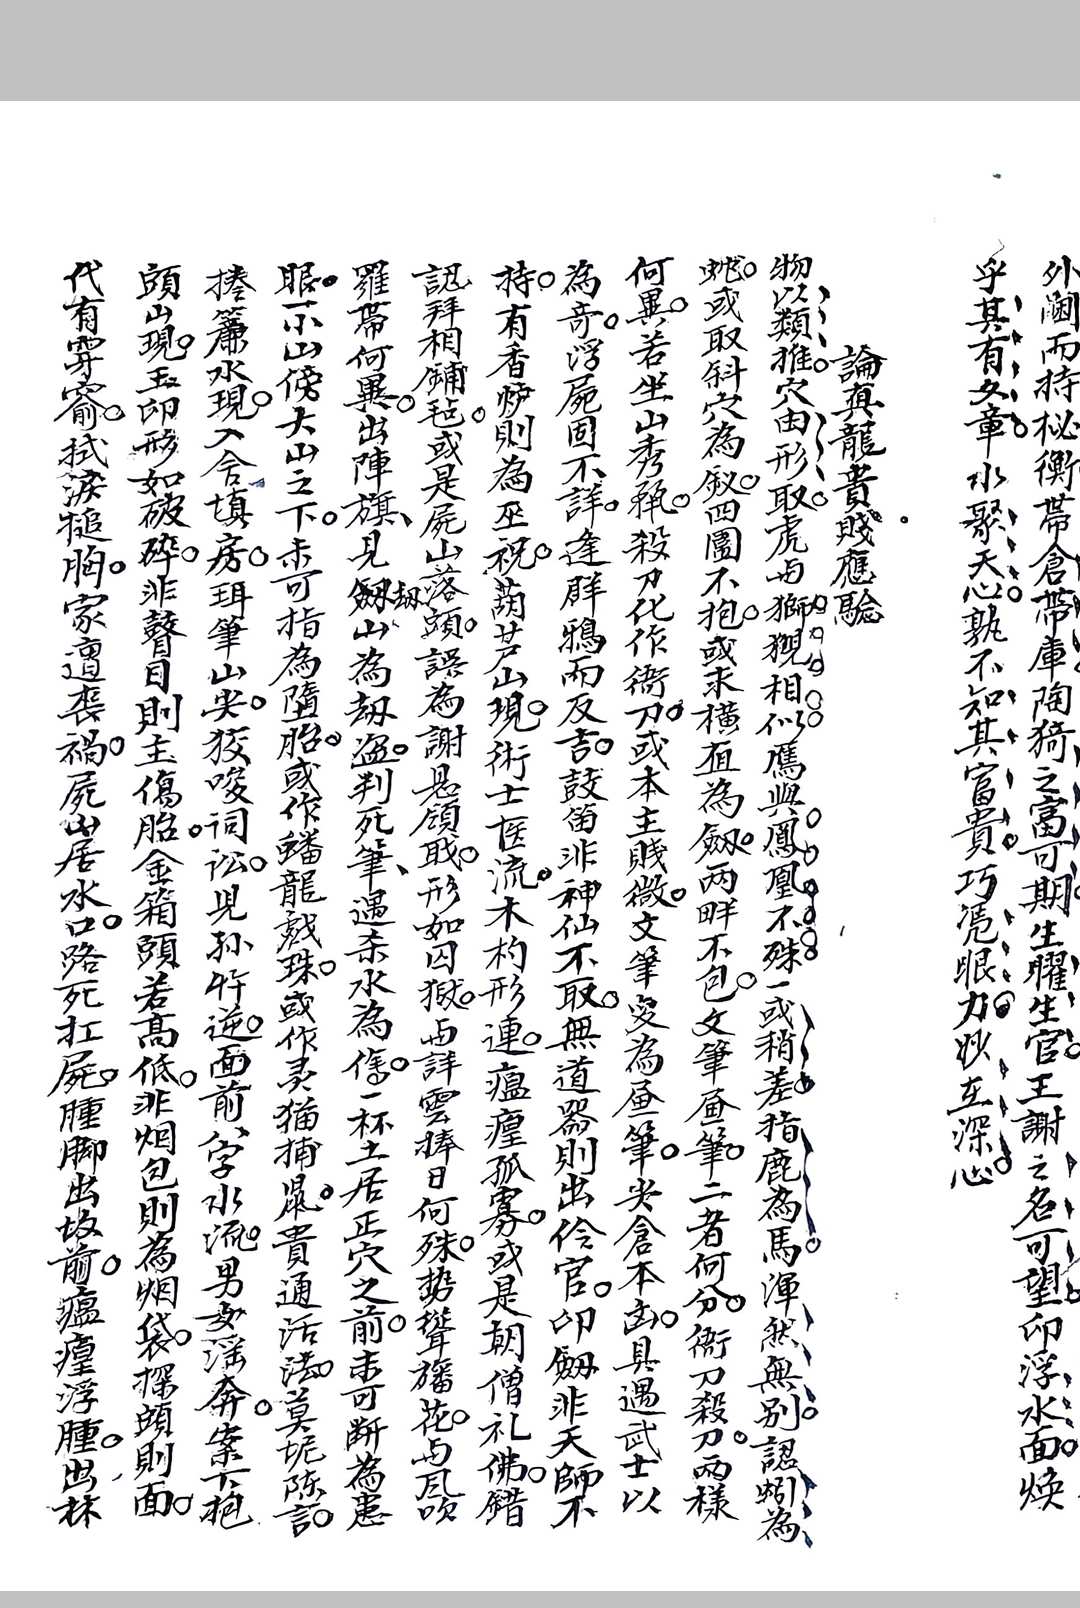 外𭏟而持秘衡帶倉帶庫陶猗之富可期生曜生官王謝之名可望印浮水面煥
乎其有文章水聚天心孰不知其富貴巧凭眼力妙在深心
論真龍貴賤應驗
物以類推穴由形取虎与獅猊相似鷹與鳳凰不殊一或稍差指鹿為馬渾然無別認蚓為
蛇或取斜穴為釵四圍不抱或求橫直為劔兩畔不包文筆昼筆二者何分衙刀殺刀兩樣
何異若坐山秀𥝠殺刀化作衙刀或本主賤微文筆变為昼筆尖倉本凶具遇武士以
為竒浮屍固不詳逢群鴉而反吉鼓笛非神仙不取無道器則出伶官印劔非天師不
持有香炉則為巫祝葫芦山現術士医流木杓形連瘟㾮孤寡或是朝僧礼佛錯
認拜相鋪毡或是屍山落頭誤為謝恩領戢形如囚獄与詳雲捧日何殊勢聳旛花与风吹
羅帶何異出陣旗見劔山為刧盗判死筆遇杀水為儁一杯土居正穴之前未可断為患
眼一小山傍大山之下未可指為墮胎或作蟠龍戯珠或作灵猫捕鼠貴通活法莫坭陈言
捲簾水現入舎填房珥筆山尖狡唆词讼児孙忤逆面前八字水流男女淫奔案下抱
頭山現玉印形如破碎非瞽目則主傷胎金箱頭若髙低非烟包則為烟袋探頭則面
代有穿窬拭淚搥胸家遭丧禍屍山居水口路死扛屍腫脚出坟前瘟㾮浮腫出林